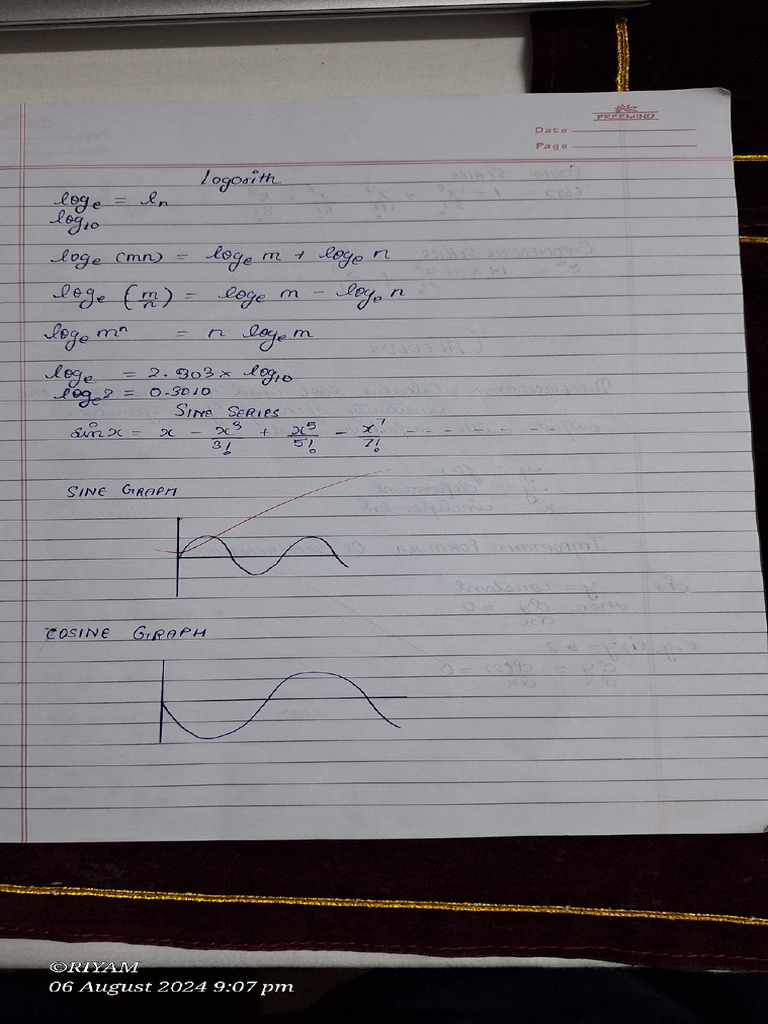 FREEMIND
Date
Page
Logorith
logₑ = ln
log₁₀
logₑ (mn) = logₑ m + logₑ n
logₑ (m/n) = logₑ m - logₑ n
logₑ mⁿ = n logₑ m
logₑ = 2.303 x log₁₀
logₑ2 = 0.3010
SINE SERIES
sin x = x - x³/3! + x⁵/5! - x⁷/7! - - - - - - -
SINE GRAPH
COSINE GRAPH
©RIYAM
06 August 2024 9:07 pm